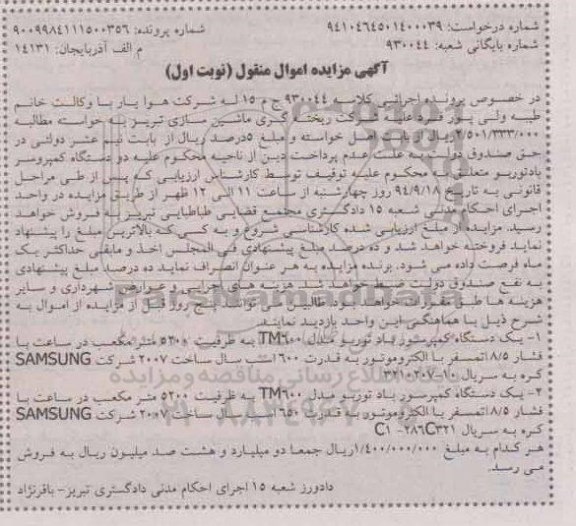 شماره درخواست: ۹۴۱۰۴۶۴۵۰۱۴۰۰۰۳۹ شماره پرونده: ۹۰۰۹۹۸۴۱۱۱۵۰۰۳۵۶
شماره بایگانی شعبه: ۹۳۰۰۴۴ م الف آذربایجان: ۱۴۱۳۱
آگهی مزایده اموال منقول (نوبت اول)
در خصوص پرونده اجرائی کلاسه ۹۳۰۰۴۴ ج م ۱۵ له شرکت هوا یار با وکالت خانم
طیبه ولی پور فرد علیه شرکت ریخته گری ماشین سازی تبریز به خواسته مطالبه
۲/۵۰۱/۳۳۳/۰۰۰ ریال اصل خواسته و مبلغ ۵درصد ریال از بابت نیم عشر دولتی در
حق صندوق دولت به علت عدم پرداخت دین از ناحیه محکوم علیه دو دستگاه کمپرسر
بادتوربو متعلق به محکوم علیه توقیف توسط کارشناس ارزیابی که پس از طی مراحل
قانونی به تاریخ ۹۴/۹/۱۸ روز چهارشنبه از ساعت ۱۱ الی ۱۲ ظهر از طریق مزایده در واحد
اجرای احکام مدنی شعبه ۱۵ دادگستری مجتمع قضایی طباطبایی تبریز به فروش خواهد
رسید. مزایده از مبلغ ارزیابی شده کارشناسی شروع و به کسی که بالاترین مبلغ را پیشنهاد
نماید فروخته خواهد شد و ده درصد مبلغ پیشنهادی فی المجلس اخذ و مابقی حداکثر یک
ماه فرصت داده می شود. برنده مزایده به هر عنوان انصراف نماید ده درصد مبلغ پیشنهادی
به نفع صندوق دولت ضبط خواهد شد. هزینه های اجرایی و عوارض شهرداری و سایر
هزینه ها طبق خواهد بود. طالبین می توانند پنج روز قبل از مزایده از اموال به
شرح ذیل با هماهنگی این واحد بازدید نمایند.
۱- یک دستگاه کمپرسور باد توربو مدل TM۶۰۰ به ظرفیت ۵۲۰۰ متر مکعب در ساعت با
فشار ۸/۵ اتمسفر با الکتروموتور به قدرت ۶۰۰ اسب سال ساخت ۲۰۰۷ شرکت SAMSUNG
کره به سریال
۲- یک دستگاه کمپرسور باد توربو مدل TM۶۰۰ به ظرفیت ۵۲۰۰ متر مکعب در ساعت با
فشار ۸/۵ اتمسفر با الکتروموتور به قدرت ۶۵۰ اسب سال ساخت ۲۰۰۷ شرکت SAMSUNG
کره به سریال C۱ -۲۸۶C۳۲۱
هر کدام به مبلغ ۱/۴۰۰/۰۰۰/۰۰۰ ریال جمعا دو میلیارد و هشت صد میلیون ریال به فروش
می رسد.
دادورز شعبه ۱۵ اجرای احکام مدنی دادگستری تبریز- باقرنژاد